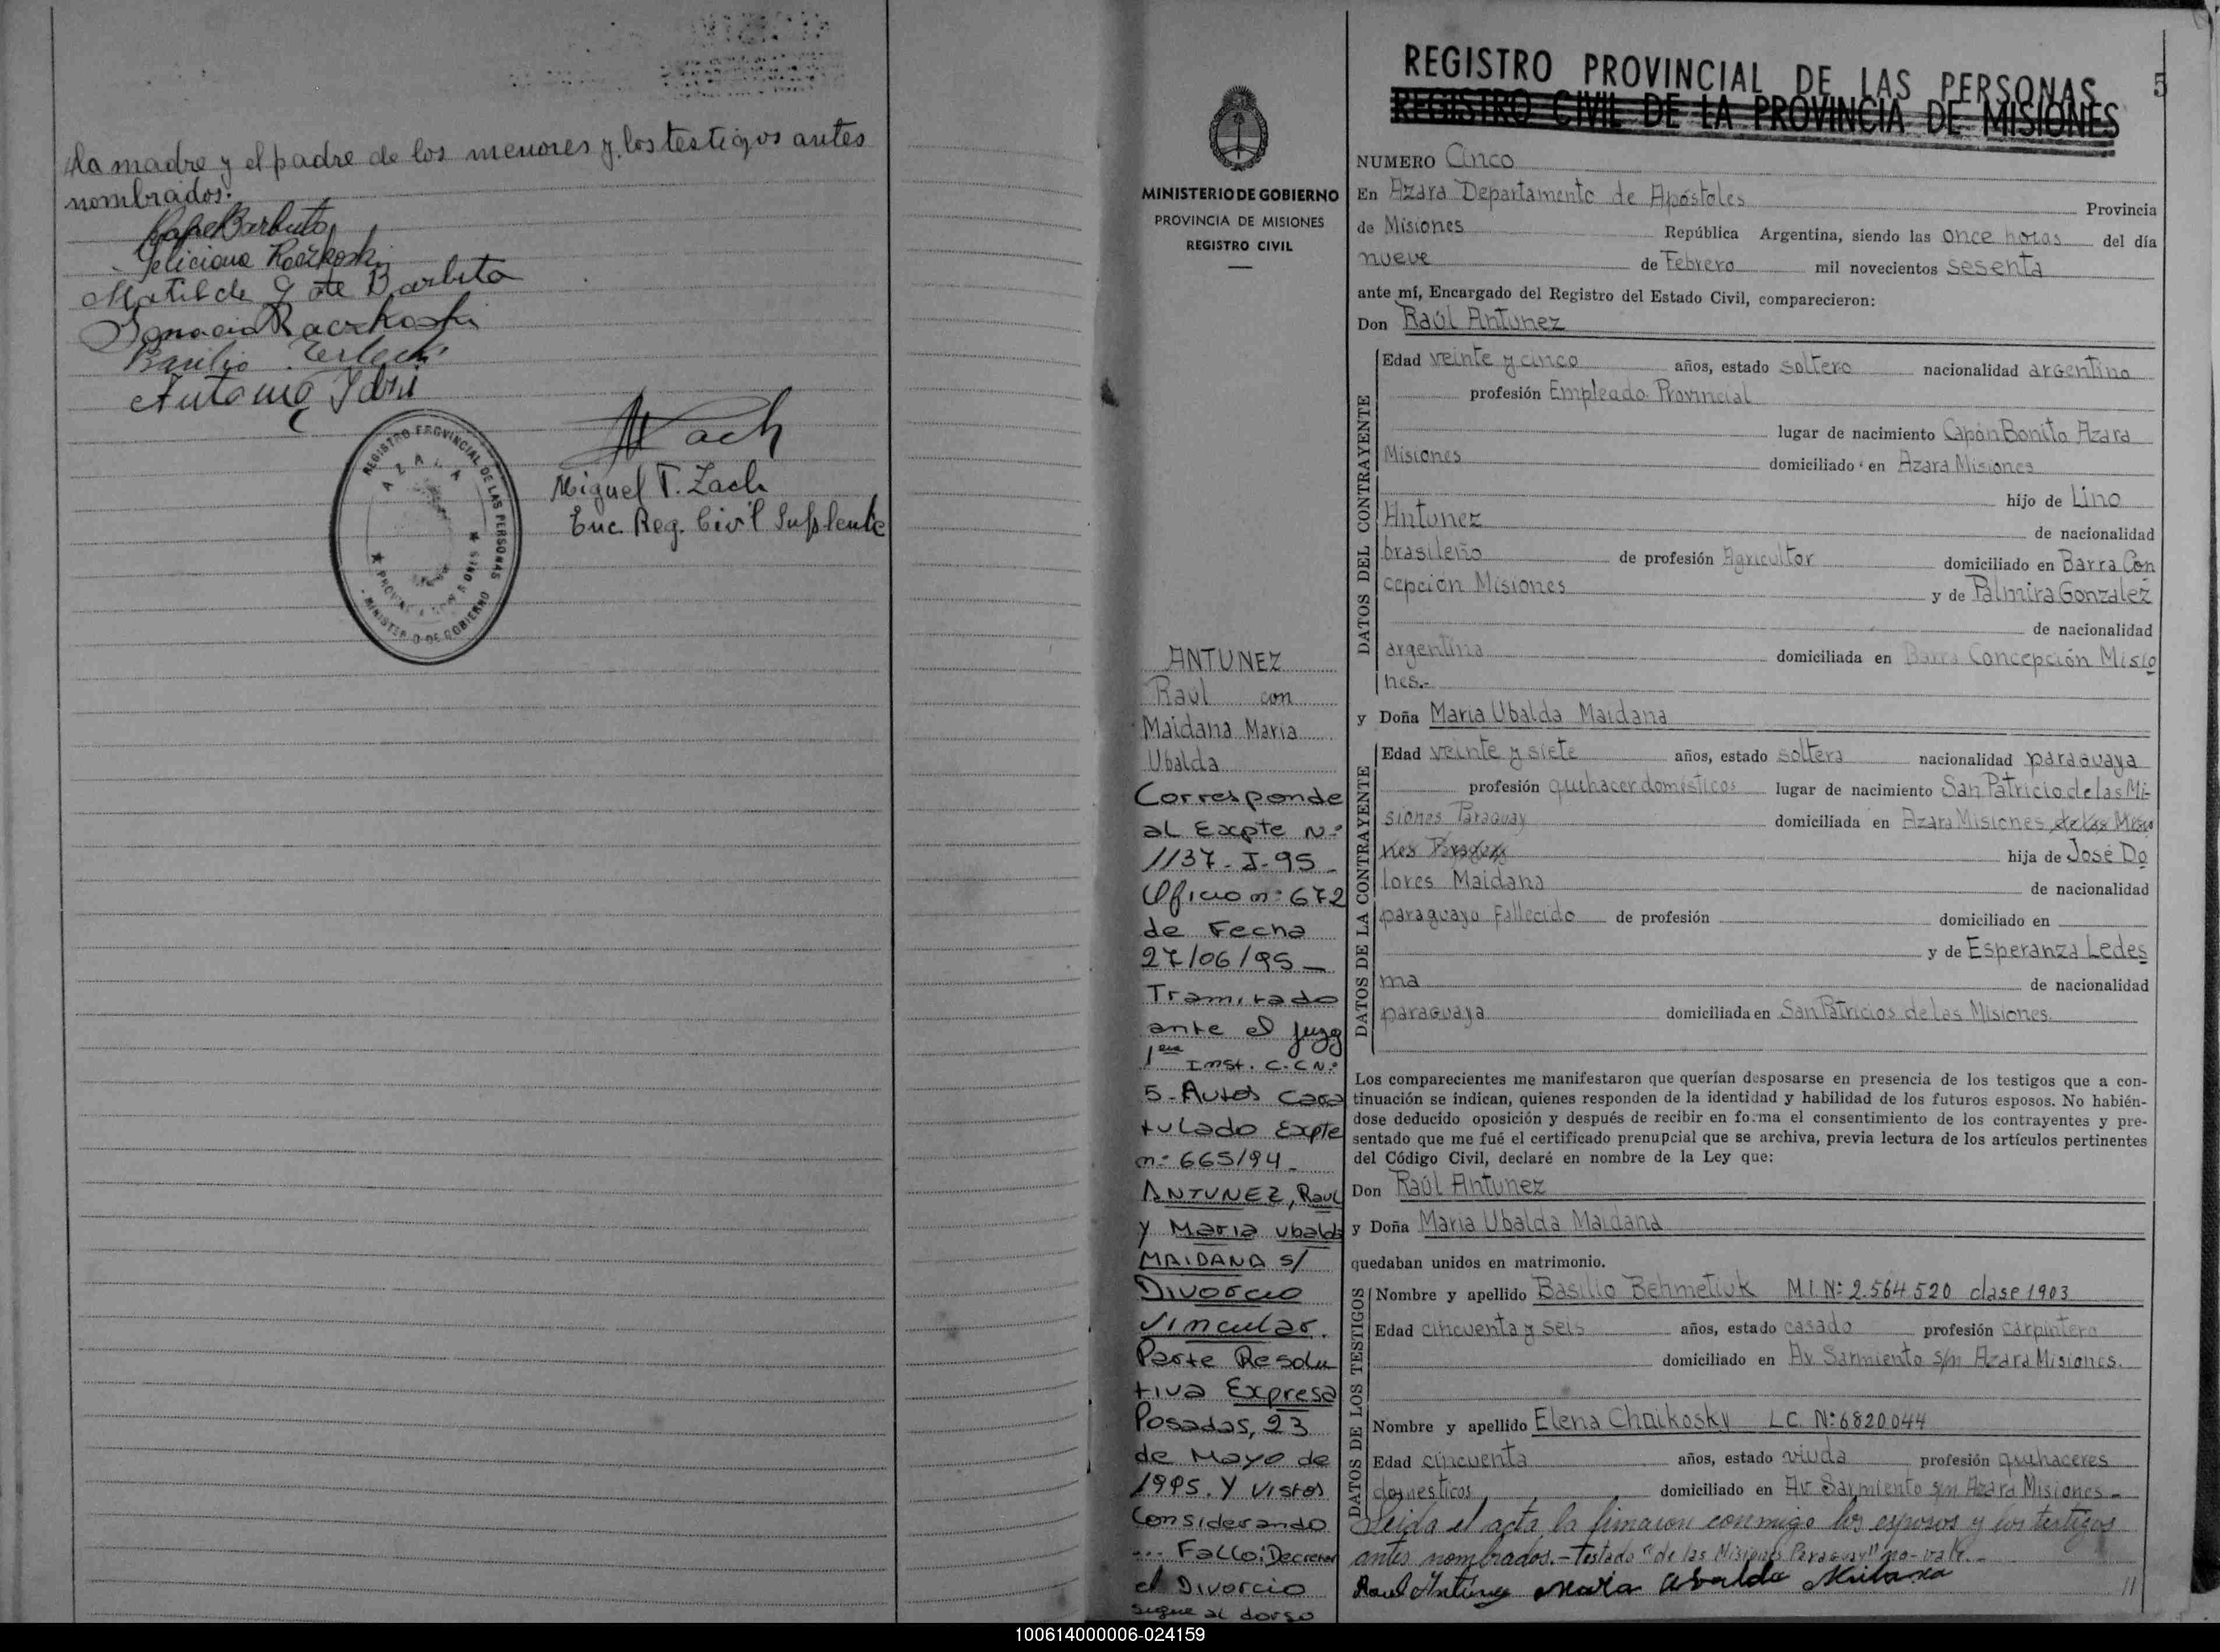 la madre y el padre de los menores y los testigos antes
nombrados.
Feliciana Raczkoski
Matilde G de Barbita
Ignacio Raczkoski
Basilio
Antonio
REGISTRO PROVINCIAL DE LAS PERSONAS
AZARA
PROVINCIA MISIONES
MINISTERIO DE GOBIERNO
Zach
Miguel T. Zach
Enc. Reg. Civil Suplente
MINISTERIO DE GOBIERNO
PROVINCIA DE MISIONES
REGISTRO CIVIL
ANTUNEZ
Raúl con
Maidana Maria
Ubalda
Corresponde
al Expte N:º
1137-I-95-
Oficio nº 672
de Fecha
27/06/95-
Tramitado
ante el Juzg
1era Inst. C.C N:º
5-Autos Cara
tulado Expte
n:º 665/94-
ANTUNEZ, Raul
y Maria Ubalda
MAIDANA S/
Divorcio
Vincular.
Parte Resolu
tiva Expresa
Posadas, 23
de Mayo de
1995. Y Vistos
Considerando
... Fallo: Decretar
el Divorcio
sigue al dorso
REGISTRO PROVINCIAL DE LAS PERSONAS 5
REGISTRO CIVIL DE LA PROVINCIA DE MISIONES
NUMERO Cinco
En Azara Departamento de Apóstoles Provincia
de Misiones República Argentina, siendo las once horas del día
nueve de Febrero mil novecientos sesenta
ante mí, Encargado del Registro del Estado Civil, comparecieron:
Don Raúl Antunez
DATOS DEL CONTRAYENTE
Edad veinte y cinco años, estado soltero nacionalidad argentina
profesión Empleado Provincial
lugar de nacimiento Capón Bonito Azara
Misiones domiciliado en Azara Misiones
hijo de Lino
Antunez de nacionalidad
brasileño de profesión Agricultor domiciliado en Barra Con
cepción Misiones y de Palmira Gonzalez
de nacionalidad
argentina domiciliada en Barra Concepción Misio
nes.-
y Doña Maria Ubalda Maidana
DATOS DE LA CONTRAYENTE
Edad veinte y siete años, estado soltera nacionalidad paraguaya
profesión quehacer domésticos lugar de nacimiento San Patricio de las Mi-
siones Paraguay domiciliada en Azara Misiones de las Misio
nes Paraguay hija de José Do
lores Maidana de nacionalidad
paraguayo Fallecido de profesión domiciliado en
y de Esperanza Ledes
ma de nacionalidad
paraguaya domiciliada en San Patricios de las Misiones.
Los comparecientes me manifestaron que querían desposarse en presencia de los testigos que a con-
tinuación se indican, quienes responden de la identidad y habilidad de los futuros esposos. No habién-
dose deducido oposición y después de recibir en forma el consentimiento de los contrayentes y pre-
sentado que me fué el certificado prenupcial que se archiva, previa lectura de los artículos pertinentes
del Código Civil, declaré en nombre de la Ley que:
Don Raúl Antunez
y Doña Maria Ubalda Maidana
quedaban unidos en matrimonio.
DATOS DE LOS TESTIGOS
Nombre y apellido Basilio Behmetiuk M.I. Nº 2.564.520 clase 1903
Edad cincuenta y seis años, estado casado profesión carpintero
domiciliado en Av. Sarmiento s/n Azara Misiones.
Nombre y apellido Elena Chaikosky L.C. Nº 6820044
Edad cincuenta años, estado viuda profesión quehaceres
domesticos domiciliado en Av. Sarmiento s/n Azara Misiones.-
Leida el acta, la firmaron conmigo los esposos y los testigos
antes nombrados.-Testado "de las Misiones Paraguay" no-vale.-
Raul Antunez Maria Ubalda Maidana //
100614000006-024159